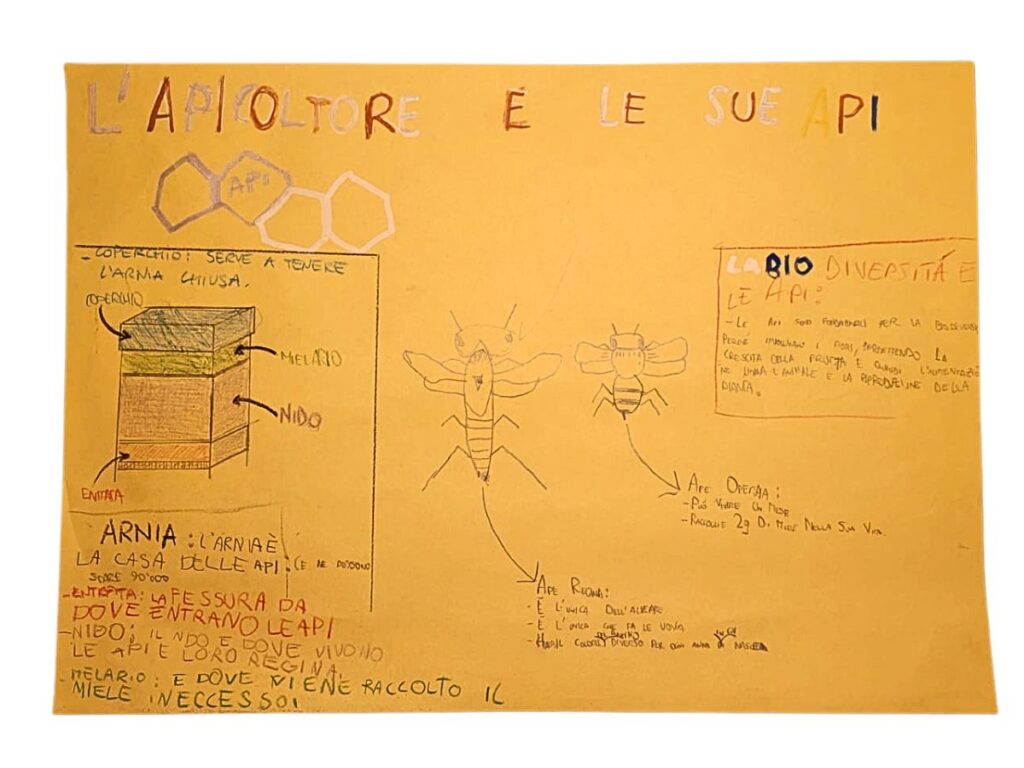 L'APICOLTORE E LE SUE API
API
- COPERCHIO: SERVE A TENERE
L'ARNIA CHIUSA.
COPERCHIO
MELARIO
NIDO
ENTRATA
ARNIA: L'ARNIA È
LA CASA DELLE API: (CE NE POSSONO
STARE 90'000
- ENTRATA: LA FESSURA DA
DOVE ENTRANO LE API
- NIDO: IL NIDO E DOVE VIVONO
LE API E LORO REGINA.
- MELARIO: E DOVE VIENE RACCOLTO IL
MIELE IN ECCESSO.
APE REGINA:
- È L'UNICA DELL'ALVEARE
- È L'UNICA CHE FA LE UOVA
DIVERSO PER OGNI ANNO DI
APE OPERAIA:
- PUÓ VIVERE UN MESE
- RACCOGLIE 2g DI MIELE NELLA SUA VITA.
LA BIODIVERSITÁ E
LE API:
- LE API SONO FONDAMENTALI PER LA
PERCHÉ I FIORI, PERMETTENDO LA
CRESCITA DELLA FRUTTA E QUINDI
E ANIMALE E LA RIPRODUZIONE DELLA
PIANTA.